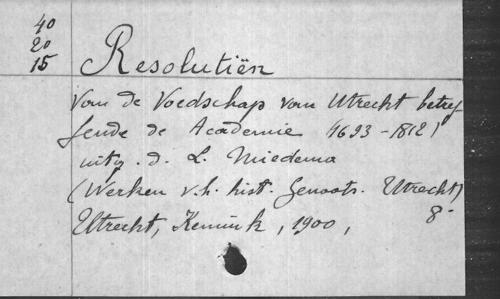 40
20
15
Resolutiën
van de Vroedschap van Utrecht betref
fende de Academie (1693-1812)
uitg. d. L. Miedema
(Werken v.h. hist. Genoots. Utrecht)
Utrecht, Kemink, 1900, 8-